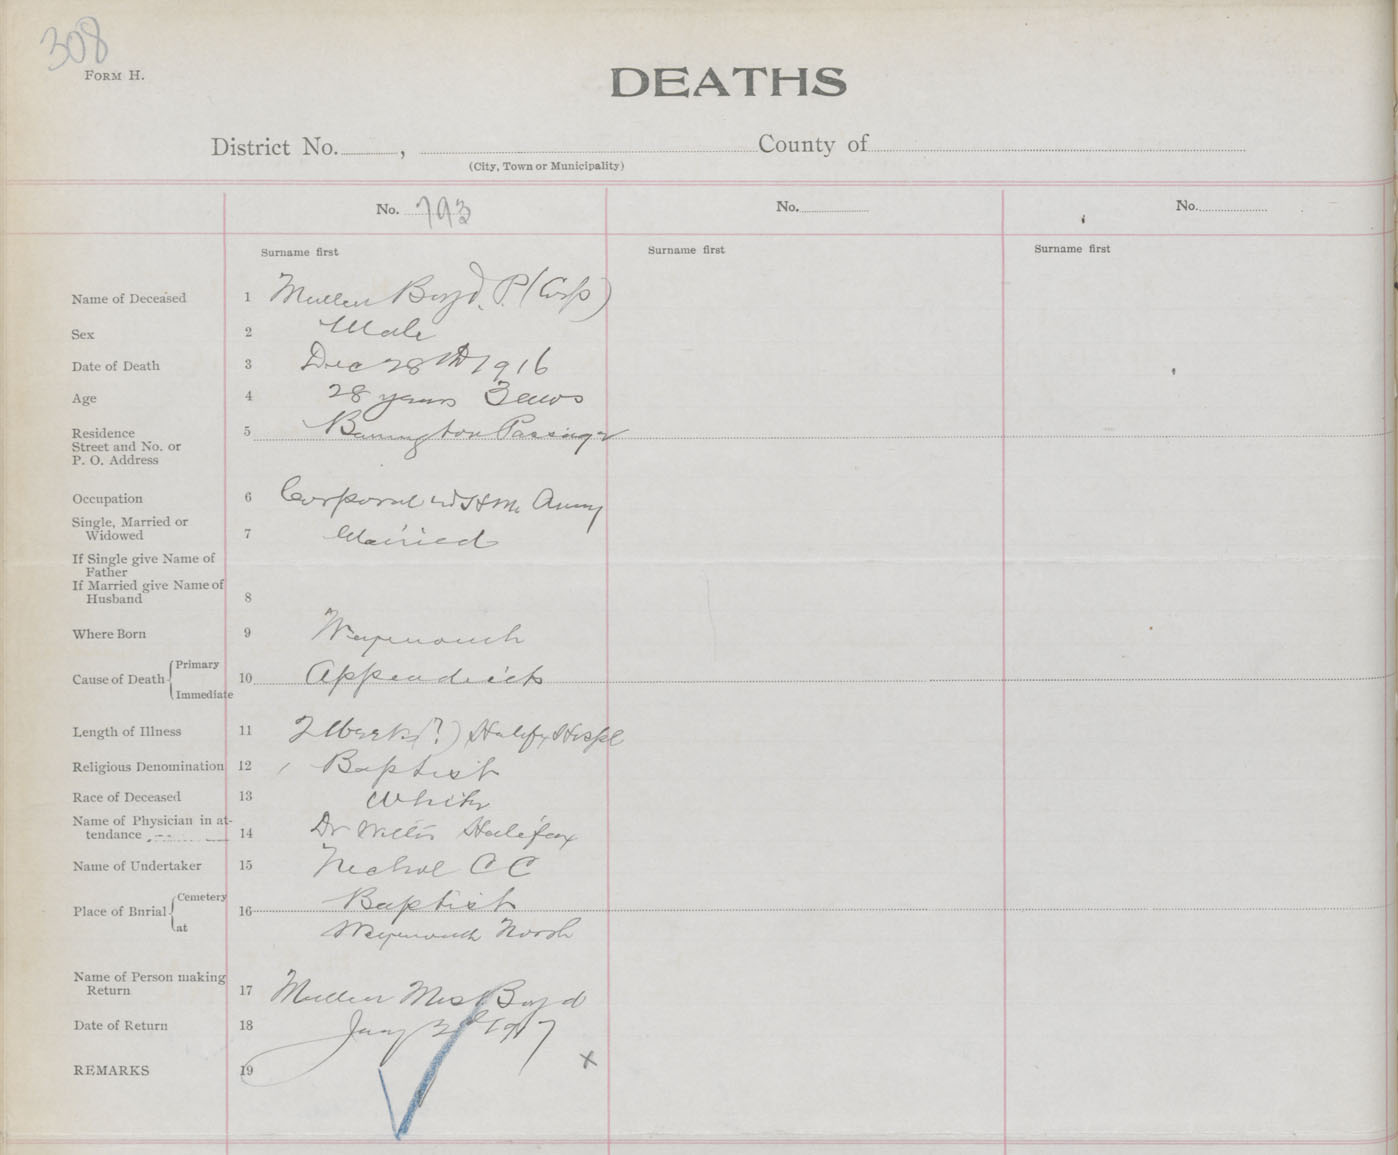 308
FORM H.
DEATHS
District No. , County of
(City, Town or Municipality)
No. 793 No. No.
Surname first Surname first Surname first
Name of Deceased 1 Mullen Boyd. P (Corp)
Sex 2 Male
Date of Death 3 Dec 28th 1916
Age 4 28 years 3 mos
Residence 5 Barrington Passage
Street and No. or
P. O. Address
Occupation 6 Corporal in H M. Army
Single, Married or
Widowed 7 Married
If Single give Name of
Father
If Married give Name of
Husband 8
Where Born 9 Weymouth
Cause of Death Primary Immediate 10 Appendicits
Length of Illness 11 2 Weeks (?) Halifx Hospl
Religious Denomination 12 Baptist
Race of Deceased 13 White
Name of Physician in at-
tendance 14 Dr Halifax
Name of Undertaker 15 C C
Place of Burial Cemetery 16 Baptist
at Weymouth North
Name of Person making
Return 17 Mullen Mrs Boyd
Date of Return 18 Jany 2d 1917
REMARKS 19 x